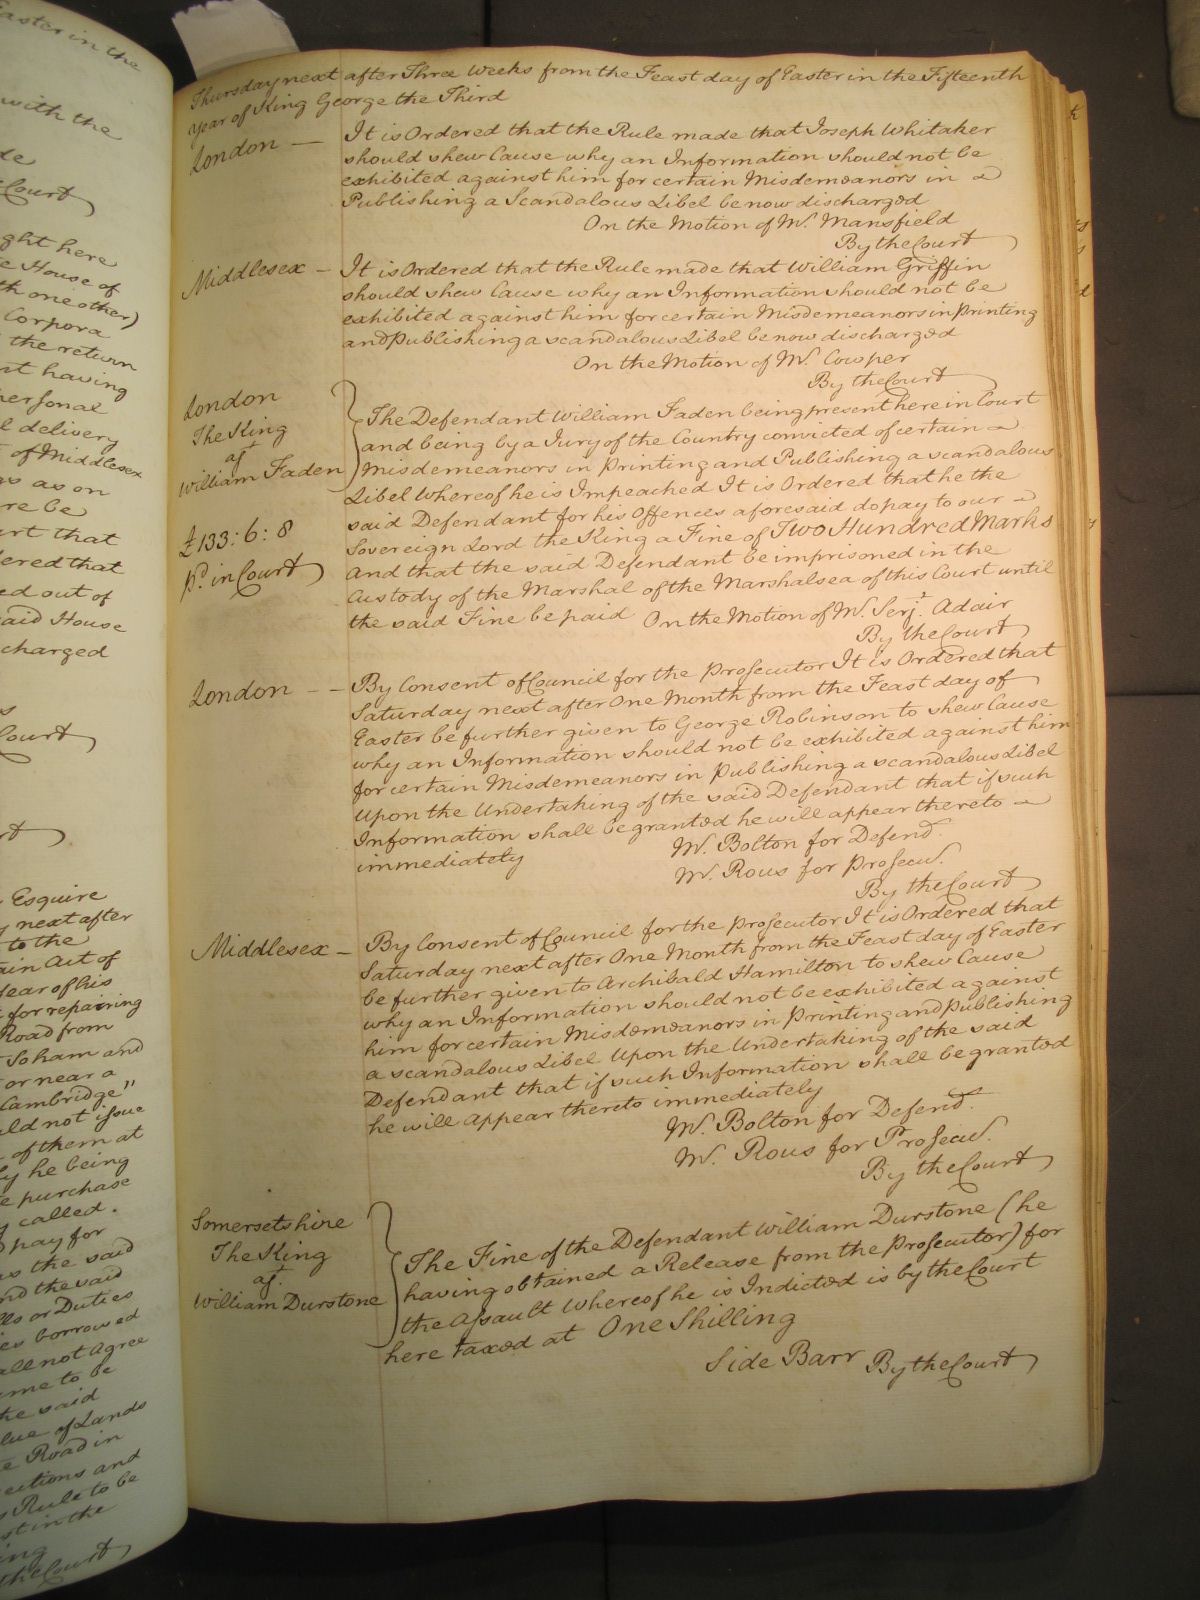 Easter in the
with the
Court
ght here
e House of
th one other)
Corpora
the return
nt having
personal
l delivery
of Middlesex
gs as on
re be
urt that
dered that
ed out of
said House
charged
Court
Esquire
y next after
to the
ain Act of
Year of his
for repairing
Road from
Soham and
or near a
Cambridge"
uld not issue
of them at
ly he being
e purchase
y called.
pay for
as the said
and the said
lls or Duties
ies borrowed
all not Agree
ame to be
the said
lue of Lands
e Road in
ections and
s Rule to be
st in the
ing
the Court
Thursday next after Three Weeks from the Feast day of Easter in the Fifteenth
year of King George the Third
London — It is Ordered that the Rule made that Joseph Whitaker
should shew Cause why an Information should not be
exhibited against him for certain Misdemeanors in
Publishing a Scandalous Libel be now discharged
On the Motion of Mr. Mansfield
By the Court
Middlesex — It is Ordered that the Rule made that William Griffin
should shew Cause why an Information should not be
exhibited against him for certain Misdemeanors in Printing
and Publishing a scandalous Libel be now discharged
On the Motion of Mr. Cowper
By the Court
London
The King
agt
William Faden
£133:6:8
pd. in Court
The Defendant William Faden being present here in Court
and being by a Jury of the Country convicted of certain
Misdemeanors in Printing and Publishing a scandalous
Libel Whereof he is Impeached It is Ordered that he the
said Defendant for his Offences aforesaid do pay to our
Sovereign Lord the King a Fine of Two Hundred Marks
And that the said Defendant be imprisoned in the
Custody of the Marshal of the Marshalsea of this Court until
the said Fine be paid On the Motion of Mr. Serjt. Adair
By the Court
London – – By Consent of Council for the Prosecutor It is Ordered that
Saturday next after One Month from the Feast day of
Easter be further given to George Robinson to shew Cause
why an Information should not be exhibited against him
for certain Misdemeanors in Publishing a scandalous Libel
Upon the Undertaking of the said Defendant that if such
Information shall be granted he will appear thereto
immediately
Mr. Bolton for Defend.
Mr. Rous for Prosecur.
By the Court
Middlesex – By Consent of Council for the Prosecutor It is Ordered that
Saturday next after One Month from the Feast day of Easter
be further given to Archibald Hamilton to shew Cause
why an Information should not be exhibited against
him for certain Misdemeanors in Printing and Publishing
a scandalous Libel Upon the Undertaking of the said
Defendant that if such Information shall be granted
he will appear thereto immediately
Mr. Bolton for Defend.
Mr. Rous for Prosecur.
By the Court
Somersetshire
The King
agt.
William Durstone
The Fine of the Defendant William Durstone (he
having obtained a Release from the Prosecutor) for
the Assault Whereof he is Indicted is by the Court
here taxed at One Shilling
Side Barr By the Court